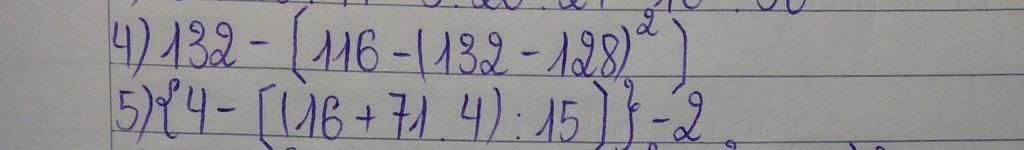 4) 132 - [116 - (132 - 128)²]
5) {4 - [(16 + 71 . 4) : 15]} - 2